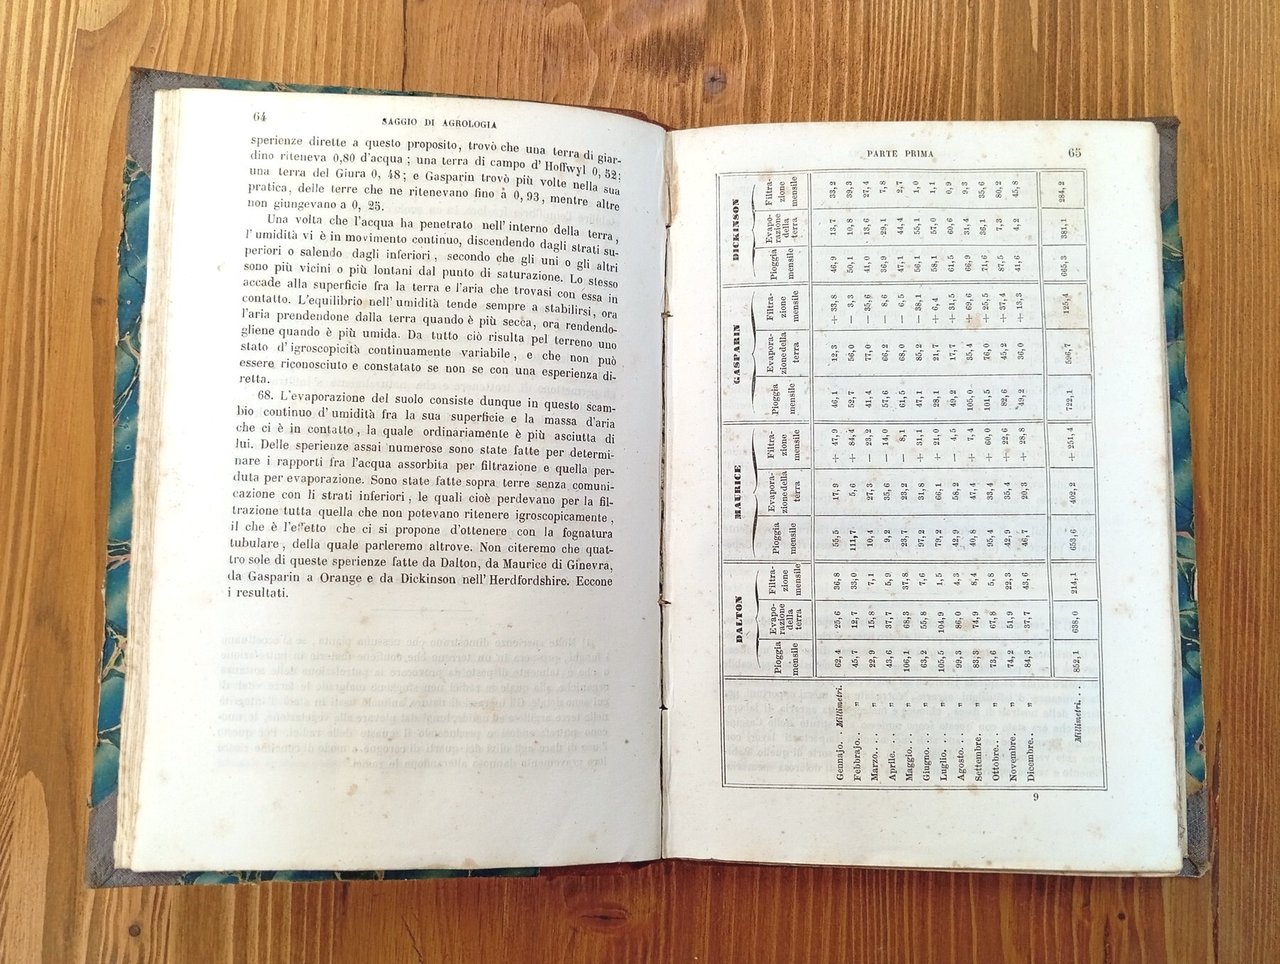 64
SAGGIO DI AGROLOGIA
sperienze dirette a questo proposito, trovò che una terra di giar-
dino riteneva 0,80 d'acqua ; una terra di campo d' Hoffwyl 0, 52;
una terra del Giura 0, 48; e Gasparin trovò più volte nella sua
pratica, delle terre che ne ritenevano fino à 0, 93, mentre altre
non giungevano a 0, 25.
Una volta che l'acqua ha penetrato nell' interno della terra ,
l'umidità vi è in movimento continuo, discendendo dagli strati su-
periori o salendo dagli inferiori , secondo che gli uni o gli altri
sono più vicini o più lontani dal punto di saturazione. Lo stesso
accade alla superficie fra la terra e l'aria che trovasi con essa in
contatto. L'equilibrio nell' umidità tende sempre a stabilirsi, ora
l'aria prendendone dalla terra quando è più secca, ora rendendo-
gliene quando è più umida. Da tutto ciò risulta pel terreno uno
stato d'igroscopicità continuamente variabile , e che non può
essere riconosciuto e constatato se non se con una esperienza di-
retta.
68. L'evaporazione del suolo consiste dunque in questo scam-
bio continuo d'umidità fra la sua superficie e la massa d'aria
che ci è in contatto , la quale ordinariamente è più asciutta di
lui. Delle sperienze assai numerose sono state fatte per determi-
nare i rapporti fra l'acqua assorbita per filtrazione e quella per-
duta per evaporazione. Sono state fatte sopra terre senza comuni-
cazione con li strati inferiori , le quali cioè perdevano per la fil-
trazione tutta quella che non potevano ritenere igroscopicamente ,
il che è l'effetto che ci si propone d'ottenere con la fognatura
tubulare , della quale parleremo altrove. Non citeremo che quat-
tro sole di queste sperienze fatte da Dalton, da Maurice di Ginevra,
da Gasparin a Orange e da Dickinson nell' Herdfordshire. Eccone
i resultati.
PARTE PRIMA
65
DALTON MAURICE GASPARIN DICKINSON
Pioggia mensile Evapo-razione della terra Filtra-zione mensile Pioggia mensile Evapora-zione della terra Filtra-zione mensile Pioggia mensile Evapora-zione della terra Filtra-zione mensile Pioggia mensile Evapo-razione della terra Filtra-zione mensile
Gennajo. . Millimetri. 62,4 25,6 36,8 55,5 17,9 + 47,9 46,1 12,3 + 33,8 46,9 13,7 33,2
Febbrajo. . „ 45,7 12,7 33,0 111,7 5,6 + 84,4 52,7 56,0 — 3,3 50,1 10,8 39,3
Marzo. . . . „ 22,9 15,8 7,1 10,4 27,3 — 23,2 41,4 77,0 — 35,6 41,0 13,6 27,4
Aprile. . . . „ 43,6 37,7 5,9 9,2 35,6 — 14,0 57,6 66,2 — 8,6 36,9 29,1 7,8
Maggio. . . „ 106,1 68,3 37,8 23,7 23,2 — 8,1 61,5 68,0 — 6,5 47,1 44,4 2,7
Giugno. . . „ 63,2 55,8 7,6 97,2 31,8 + 31,1 47,1 85,2 — 38,1 56,1 55,1 1,0
Luglio. . . . „ 105,5 104,9 1,5 79,2 66,1 + 21,0 28,1 21,7 + 6,4 58,1 57,0 1,1
Agosto. . . „ 99,3 86,0 4,3 42,9 58,2 — 4,5 49,2 17,7 + 31,5 61,5 60,6 0,9
Settembre. . „ 83,3 74,9 8,4 40,8 47,4 + 7,4 105,0 35,4 + 69,6 66,9 31,4 9,3
Ottobre. . . „ 73,6 67,8 5,8 95,4 33,4 + 60,0 101,5 76,0 + 25,5 71,6 36,1 35,6
Novembre. . „ 74,2 51,9 22,3 42,9 35,4 + 22,6 82,6 45,2 + 37,4 87,5 7,3 80,2
Dicembre. . „ 84,3 37,7 43,6 46,7 20,3 + 28,8 49,2 36,0 + 13,3 41,6 4,2 45,8
Millimetri. . . 852,1 638,0 214,1 653,6 402,2 + 251,4 722,1 596,7 125,4 665,3 381,1 284,2
9